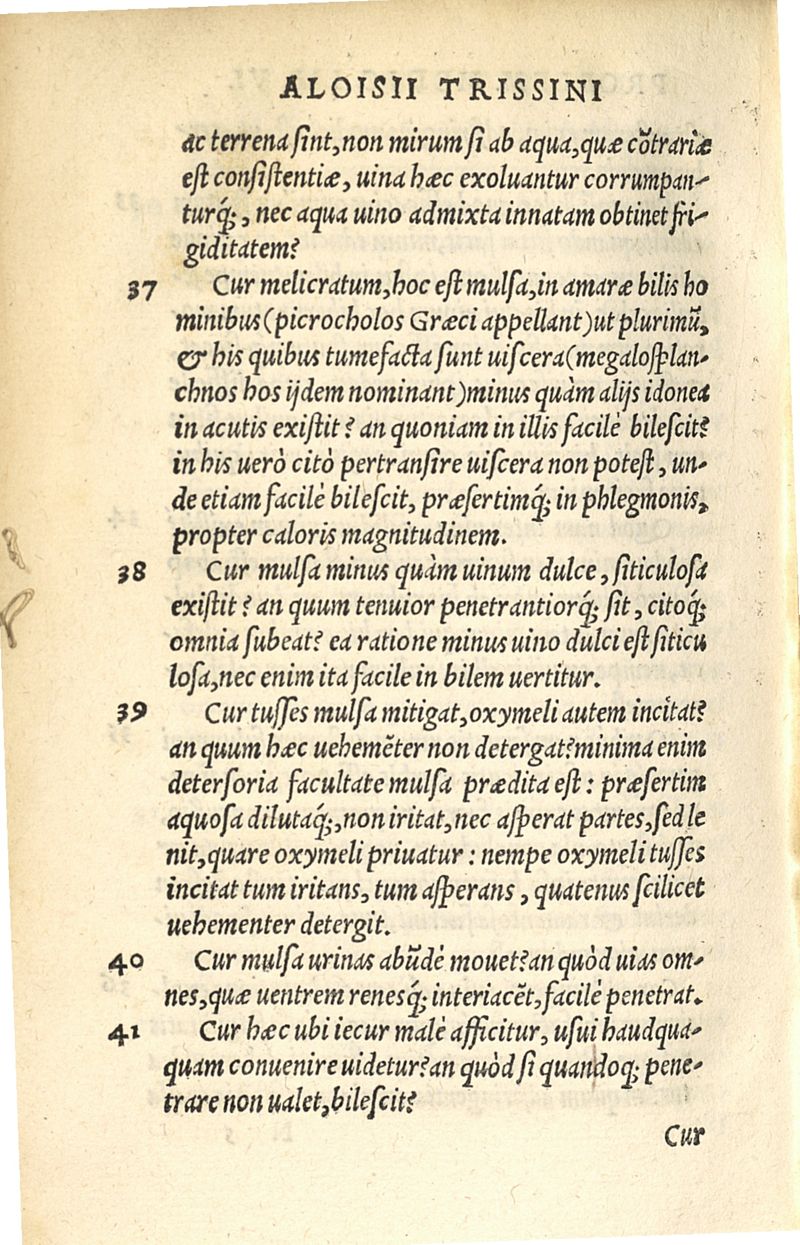 ALOISII TRISSINI
ac terrena sint, non mirum si ab aqua, quæ cõtrariæ
est consistentiæ, uina hæc exoluantur corrumpan-
turq́;, nec aqua uino admixta innatam obtinet fri-
giditatem?
37 Cur melicratum, hoc est mulsa, in amaræ bilis ho
minibus (picrocholos Græci appellant) ut plurimũ,
& his quibus tumefacta sunt uiscera (megalosplan-
chnos hos ijdem nominant) minus quàm alijs idonea
in acutis existit? an quoniam in illis facilè bilescit?
in his uerò citò pertransire uiscera non potest, un-
de etiam facilè bilescit, præsertimq́; in phlegmonis,
propter caloris magnitudinem.
38 Cur mulsa minus quàm uinum dulce, siticulosa
existit? an quum tenuior penetrantiorq́; sit, citoq́;
omnia subeat? ea ratione minus uino dulci est siticu
losa, nec enim ita facile in bilem uertitur.
39 Cur tusses mulsa mitigat, oxymeli autem incitat?
an quum hæc uehemẽter non detergat? minima enim
detersoria facultate mulsa prædita est: præsertim
aquosa dilutaq́;, non iritat, nec asperat partes, sed le
nit, quare oxymeli priuatur: nempe oxymeli tusses
incitat tum iritans, tum asperans, quatenus scilicet
uehementer detergit.
40 Cur mulsa urinas abũdè mouet? an quòd uias om-
nes, quæ uentrem renesq́; interiacẽt, facilè penetrat.
41 Cur hæc ubi iecur malè afficitur, usui haudqua-
quam conuenire uidetur? an quòd si quandoq; pene-
trare non ualet, bilescit?
Cur